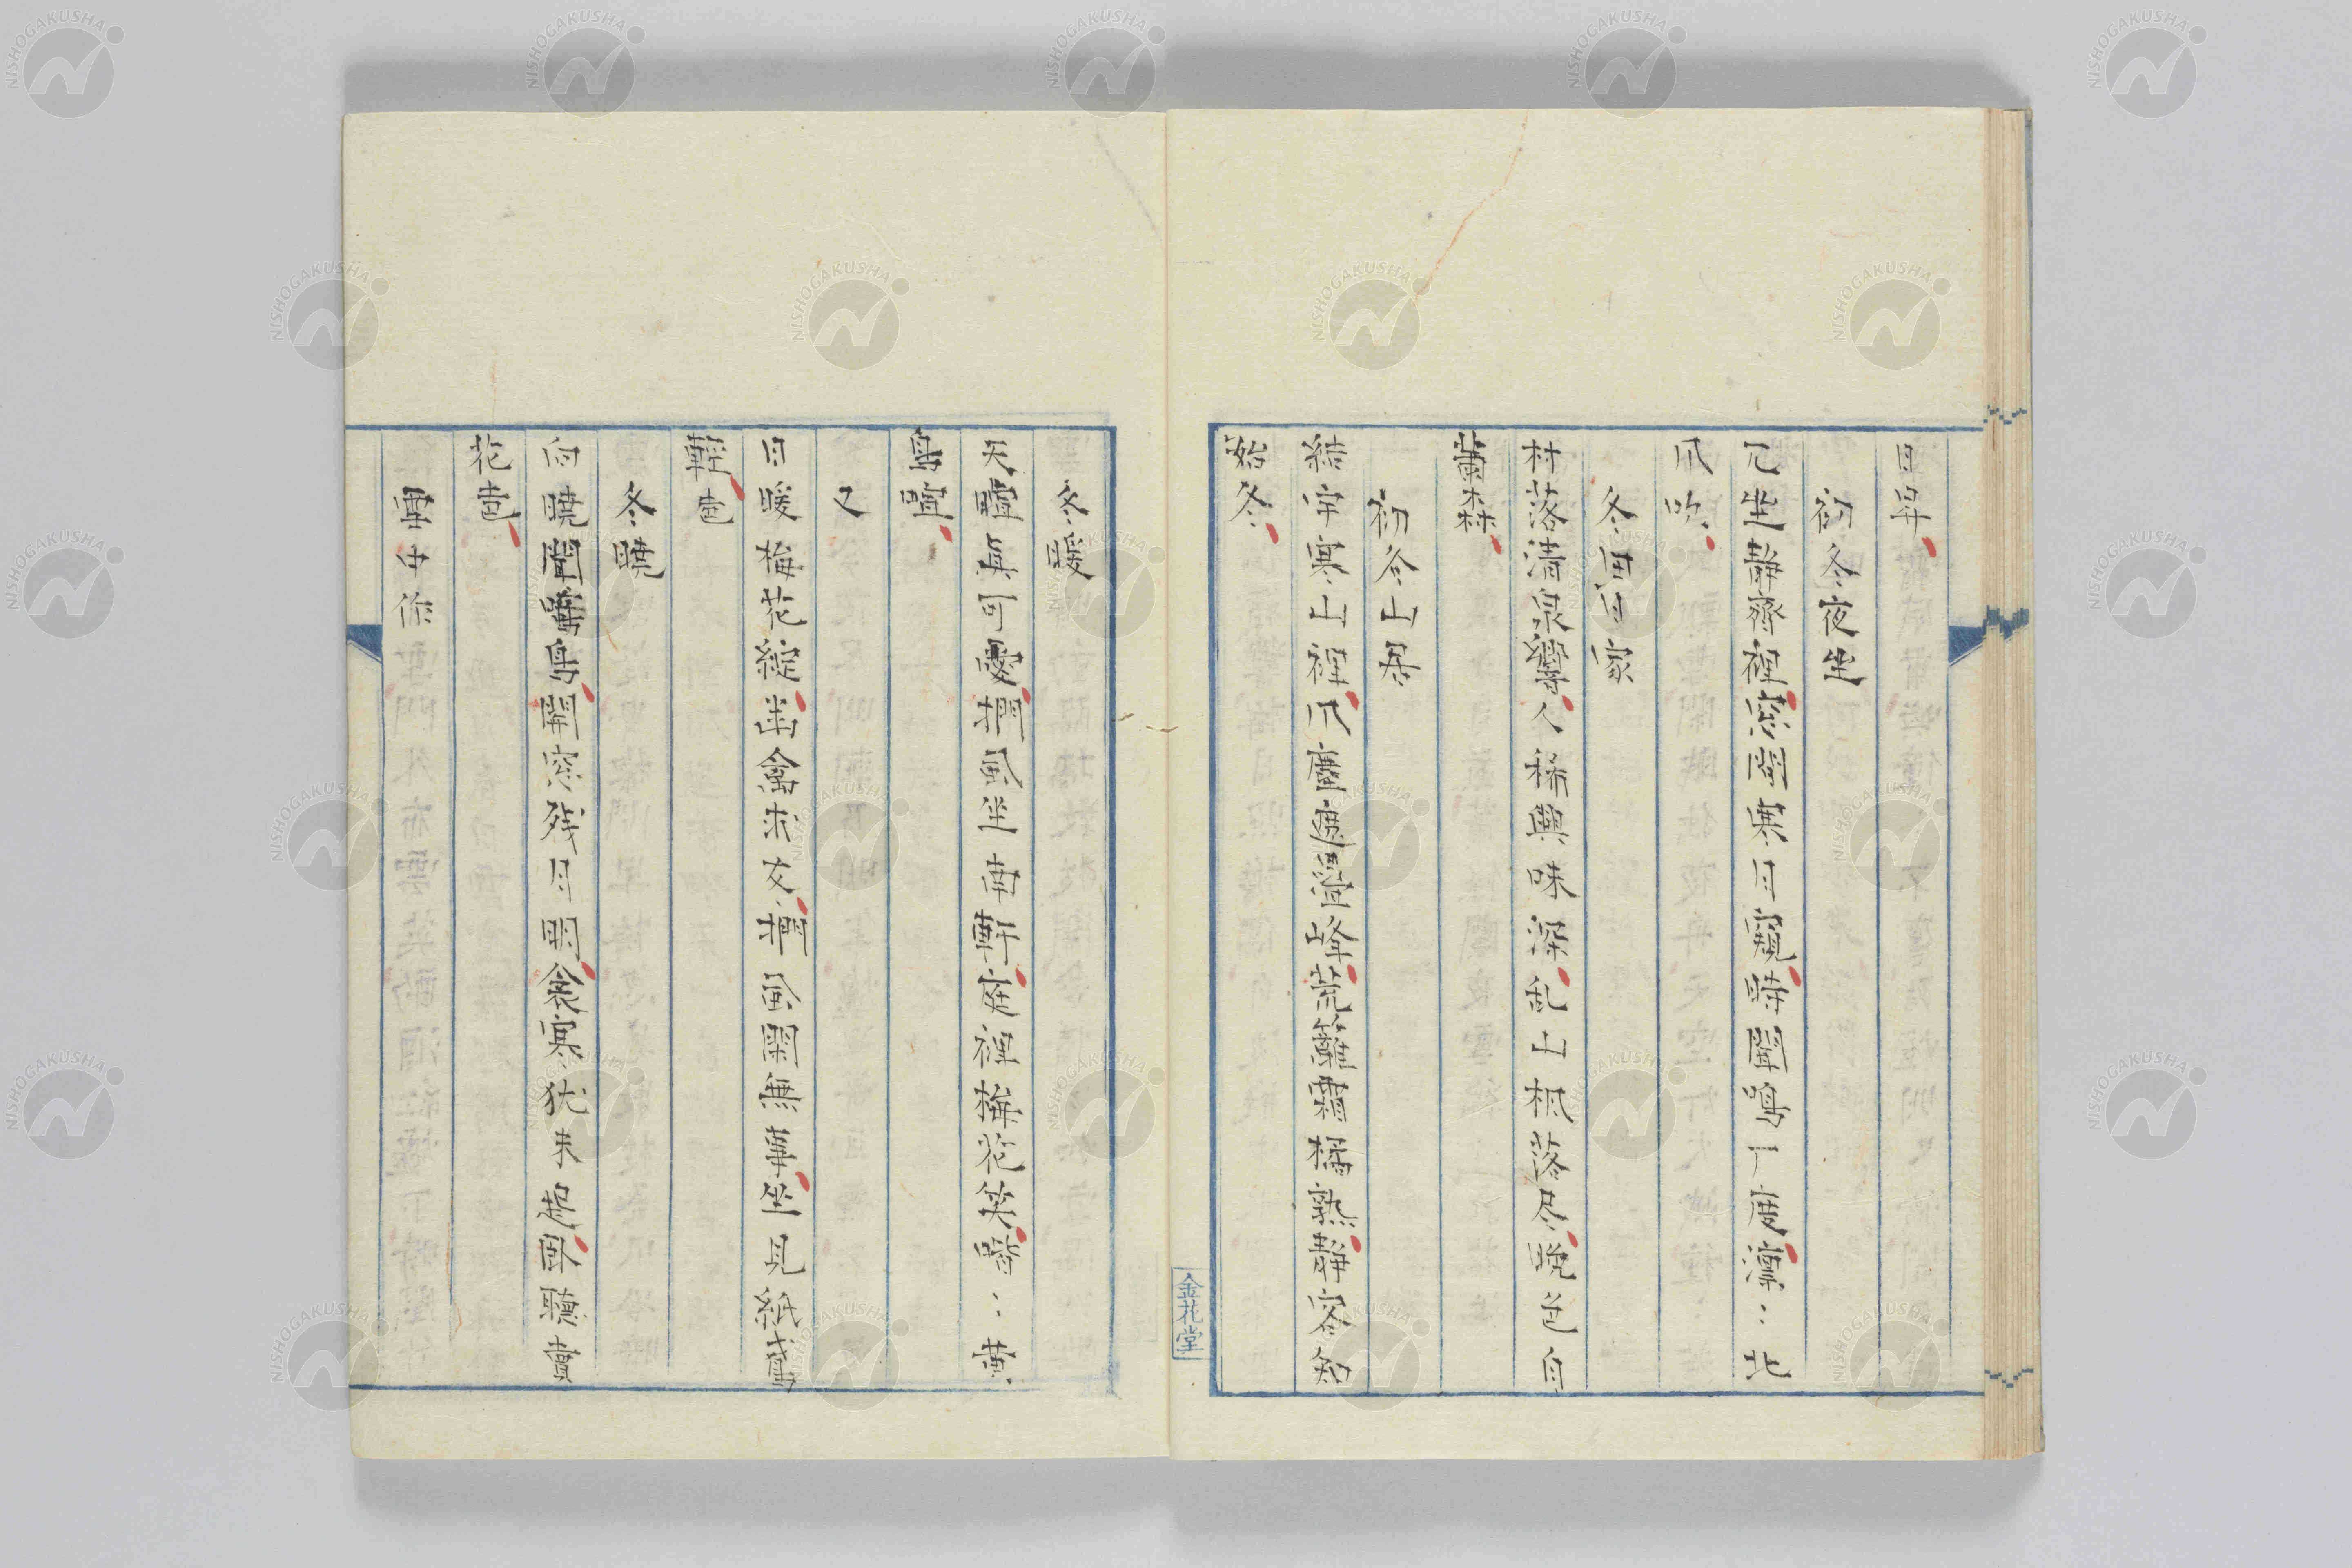 日舁
初冬夜坐
兀坐静齋裡窓間寒月窺時聞鳴戸度凛〻北
爪吹〻
冬田家
村落清泉響人稀興味深乱山楓落尽晩色自
蕭森
初冬山居
結宇寒山裡爪塵遠峰荒蘺霜橘熟静客知
始冬
冬暖
天暄真可愛擱風坐南軒庭裡梅花笑喈〻黄
鳥暄
又
日暖梅花綻幽禽求友擱風閑無事坐見紙鳶
軽走
冬暁
向暁聞啼鳥開窓残月明衾寒猶未起臥聴賣
花声
雪中作
金花堂
NISHOGAKUSHA